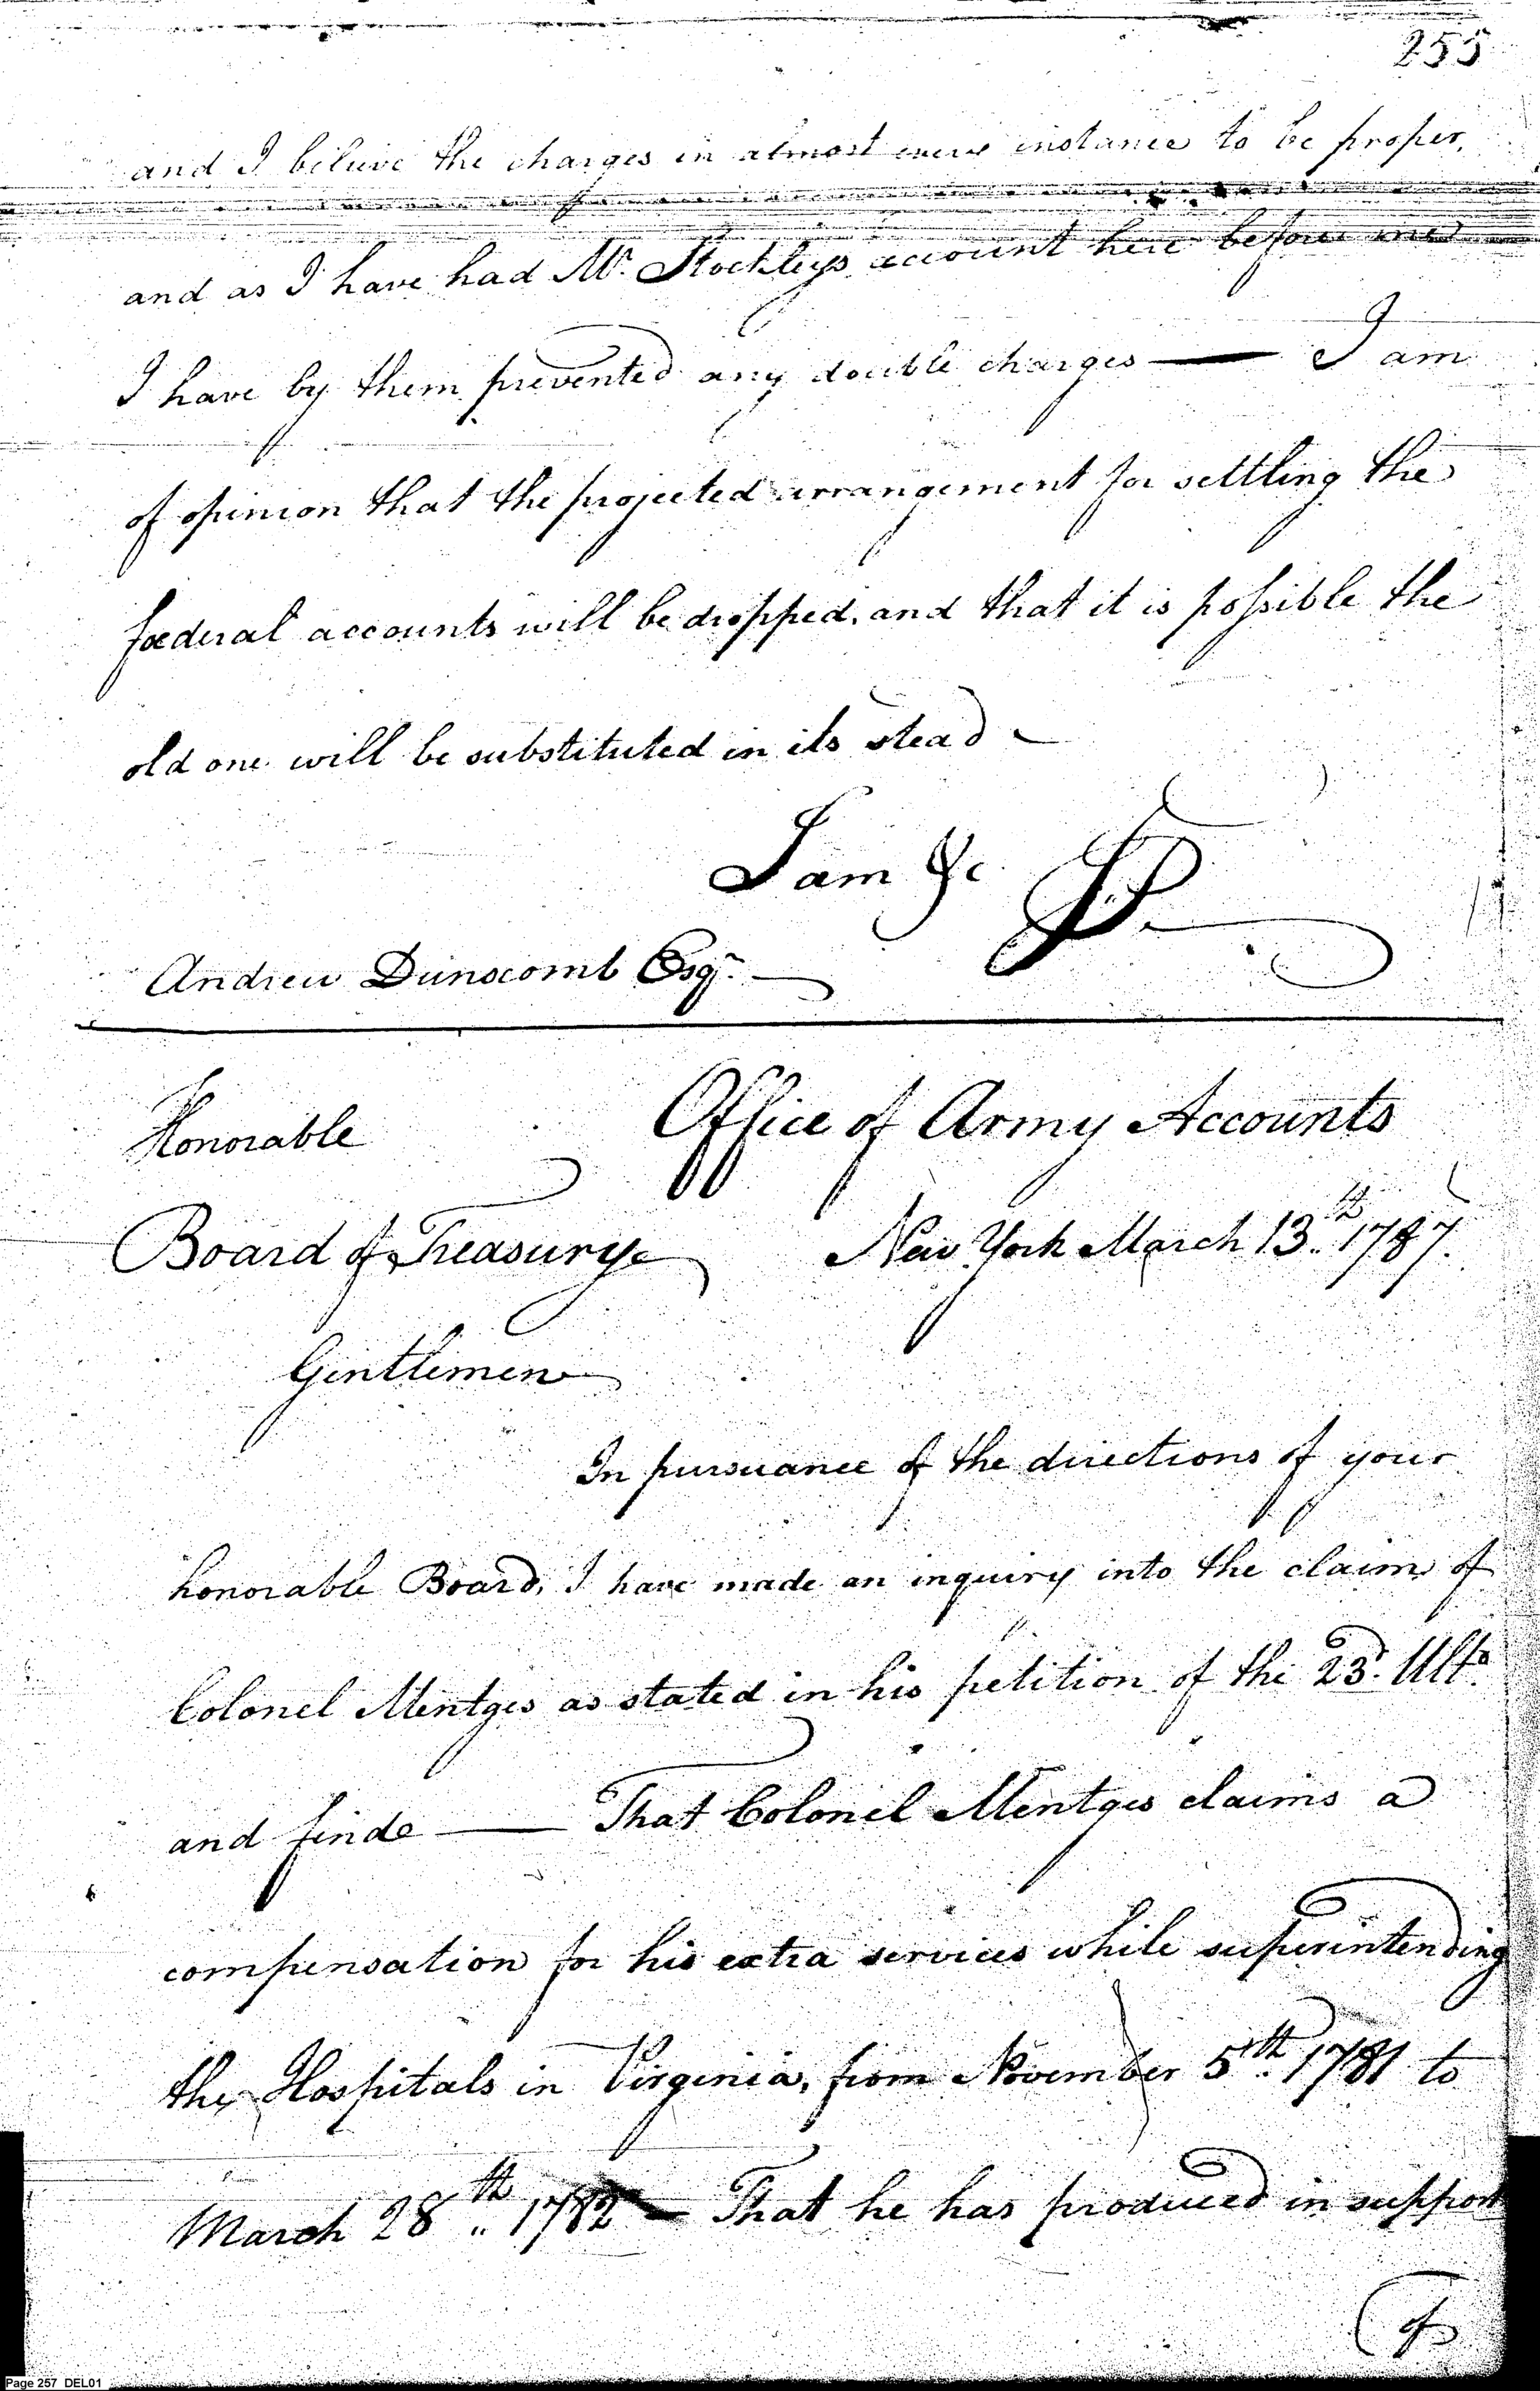 255
and I believe the charges in almost every instance to be proper,
and as I have had Mr. Stockleys account here before me
I have by them prevented any double charges — I am
of opinion that the projected arrangement for settling the
fœderal accounts will be dropped, and that it is possible the
old one will be substituted in its stead —
I am &c
Andrew Dunscomb Esqr. —
Honorable Office of Army Accounts
Board of Treasury New York March 13th. 1787.
Gentlemen
In pursuance of the directions of your
honorable Board, I have made an inquiry into the claim of
Colonel Mentges as stated in his petition of the 23d. Ulto.
and finde — That Colonel Mentges claims a
compensation for his extra services while superintending
the Hospitals in Virginia, from November 5th. 1781 to
March 28th. 1782 — That he has produced in support
of
Page 257 DEL01